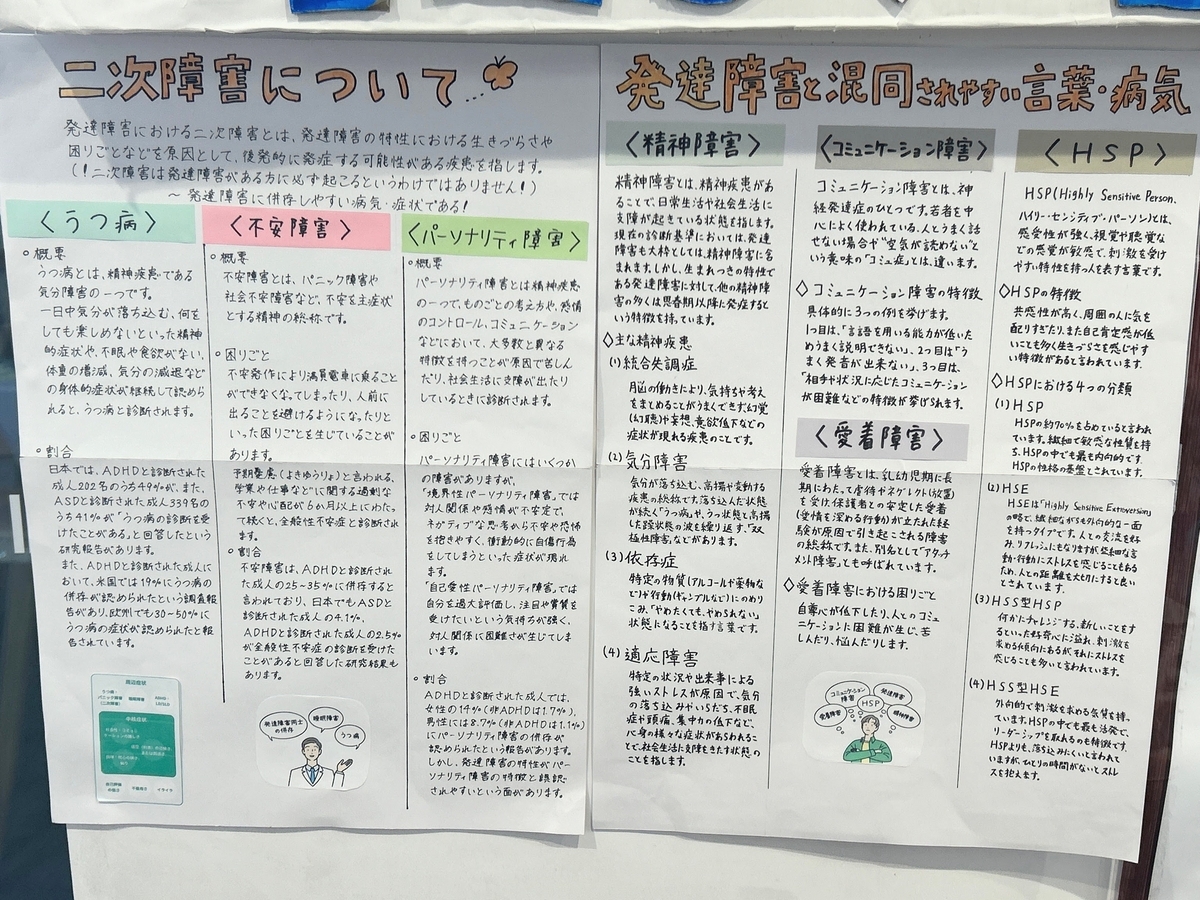 二次障害について
発達障害における二次障害とは、発達障害の特性における生きづらさや
困りごとなどを原因として、従発的に発症する可能性がある疾患を指します。
(!二次障害は発達障害がある方に必ず起こるというわけではありません!)
~ 発達障害に併存しやすい病気・症状である!
〈うつ病〉
概要
うつ病とは、精神疾患である
気分障害の一つです。
一日中気分が落ち込む、何を
しても楽しめないといった精神
的症状や、不眠や食欲がない、
体重の増減、気分の減退などの
の身体的症状が継続して認めら
れると、うつ病と診断されます。
割合
日本では、ADHDと診断された
成人202名のうち49%が、また、
ASDと診断された成人339名の
うち41%が「うつ病の診断を受
けたことがある」と回答したという
研究報告があります。
また、ADHDと診断された成人に
おいて、米国では19%にうつ病の
併存が認められたという調査報
告があり、欧州でも30~50%に
うつ病の症状が認められたと報
告されています。
周辺症状
うつ病・
パニック障害
(二次障害)
睡眠障害
中核症状
不器用さ
イライラ
〈不安障害〉
概要
不安障害とは、パニック障害や
社会不安障害など、不安を主症状
とする精神の総称です。
困りごと
不安発作により満員電車に乗ること
ができなくなってしまったり、人前に
出ることを避けるようになったりと
いった困りごとを生じていることが
あります。
予期憂慮(よきゆうりょ)と言われる、
学業や仕事などに関する過剰な
不安や心配が6か月以上にわたっ
て続くと、全般性不安症と診断されま
す。
割合
不安障害は、ADHDと診断され
た成人の25~35%に併存すると
言われており、日本でもASDと
診断された成人の4.1%、
ADHDと診断された成人の2.5%
が全般性不安症の診断を受けた
ことがあると回答した研究結果も
あります。
発達障害同士
の併存
睡眠障害
うつ病
〈パーソナリティ障害〉
概要
パーソナリティ障害とは精神疾患
の一つで、ものごとの考え方や、感情
のコントロール、コミュニケーション
などにおいて、大多数と異なる
特徴を持つことが原因で苦しん
だり、社会生活に支障が出たり
しているときに診断されます。
困りごと
パーソナリティ障害にはいくつか
の障害がありますが、
「境界性パーソナリティ障害」では
対人関係や感情が不安定で、
ネガティブな思考から不安や恐怖
を抱きやすく、衝動的に自傷行為
をしてしまうといった症状が現れ
ます。
「自己愛性パーソナリティ障害」では
自分を過大評価し、注目や賞賛を
受けたいという気持ちが強く、
対人関係に困難さが生じてしま
います。
割合
ADHDと診断された成人では、
女性の14%(非ADHDは1.7%)、
男性には8.7%(非ADHDは1.1%)
にパーソナリティ障害の併存が
認められたという報告があります。
しかし、発達障害の特性がパー
ソナリティ障害の特徴と誤認
されやすいという面があります。
発達障害と混同されやすい言葉・病気
〈精神障害〉
精神障害とは、精神疾患があ
ることで、日常生活や社会生活に
支障が起きている状態を指します。
現在の診断基準においては、発達
障害も大枠としては、精神障害に含
まれます。しかし、生まれつきの特性で
ある発達障害に対して、他の精神障
害の多くは思春期以降に発症すると
いう特徴を持っています。
◇主な精神疾患
(1)統合失調症
脳の働きにより、気持ちや考え
をまとめることがうまくできず、幻覚
(幻聴)や妄想、意欲低下などの
症状が現れる疾患のことです。
(2)気分障害
気分が落ち込む、高揚や変動する
疾患の総称です。落ち込んだ状態
が続く「うつ病」や、うつ状態と高揚
した躁状態の波を繰り返す、「双
極性障害」などがあります。
(3)依存症
特定の物質(アルコールや薬物な
ど)や行動(ギャンブルなど)にのめり
こみ、「やめたくても、やめられない」
状態になることを指す言葉です。
(4)適応障害
特定の状況や出来事による
強いストレスが原因で、気分
の落ち込みやいらだち、不眠
症や頭痛、集中力の低下など、
心身の様々な症状があらわれるこ
とで、社会生活に支障をきたす状態の
ことを指します。
〈コミュニケーション障害〉
コミュニケーション障害とは、神
経発達症のひとつです。若者を中
心によく使われている、人とうまく話
せない場合や“空気が読めない”と
いう意味の「コミュ症」とは、違います。
◇コミュニケーション障害の特徴
具体的に3つの例を挙げます。
1つ目は、「言語を用いる能力が低いた
めうまく説明できない」、2つ目は「う
まく発音が出来ない」、3つ目は、
「相手や状況に応じたコミュニケーション
が困難などの特徴が挙げられます。
〈愛着障害〉
愛着障害とは、乳幼児期に長
期にわたって虐待やネグレクト(放置)
を受け、保護者との安定した愛着
(愛情を深める行動)が立たれた経
験が原因で引き起こされる障害
の総称です。また、別名として「アタッチ
メント障害」、とも呼ばれています。
◇愛着障害における困りごと
自尊心が低下したり、人とのコミュ
ニケーションに困難が生じ、苦
しんだり、悩んだりします。
コミュニケーション
障害
発達障害
HSP
愛着障害
精神障害
〈HSP〉
HSP(Highly Sensitive Person、
ハイリー・センシティブ・パーソン)とは、
感受性が強く、視覚や聴覚な
どの感覚が敏感で、刺激を受け
やすい特性を持つ人を表す言葉です。
◇HSPの特徴
共感性が高く、周囲の人に気を
配りすぎたり、また自己肯定感が低
いことも多く生きづらさを感じやす
い特徴があると言われています。
◇HSPにおける4つの分類
(1)HSP
HSPの約70%を占めていると言われ
ています。繊細で敏感な性質を持
ち、HSPの中でも最も内向的です。
HSPの性格の基盤とされています。
(2)HSE
HSEは「Highly Sensitive Extroversion」
の略で、繊細ながらも外向的な一面
を持つタイプです。人との交流を好
み、リフレッシュにもなりますが、些細な言
動・行動にストレスを感じることもある
ため、人との距離を大切にすると良い
とされています。
(3)HSS型HSP
何かにチャレンジする、新しいことをす
るといった好奇心に溢れ、刺激を
求める傾向にあるが、それにストレスを
感じることも多いと言われています。
(4)HSS型HSE
外向的で刺激を求める気質を持っ
ています。HSPの中でも最も活発で、
リーダーシップを取れるのも特徴です。
HSPよりも、落ち込みにくいと言われて
いますが、ひとりの時間がないとストレ
スを抱えます。